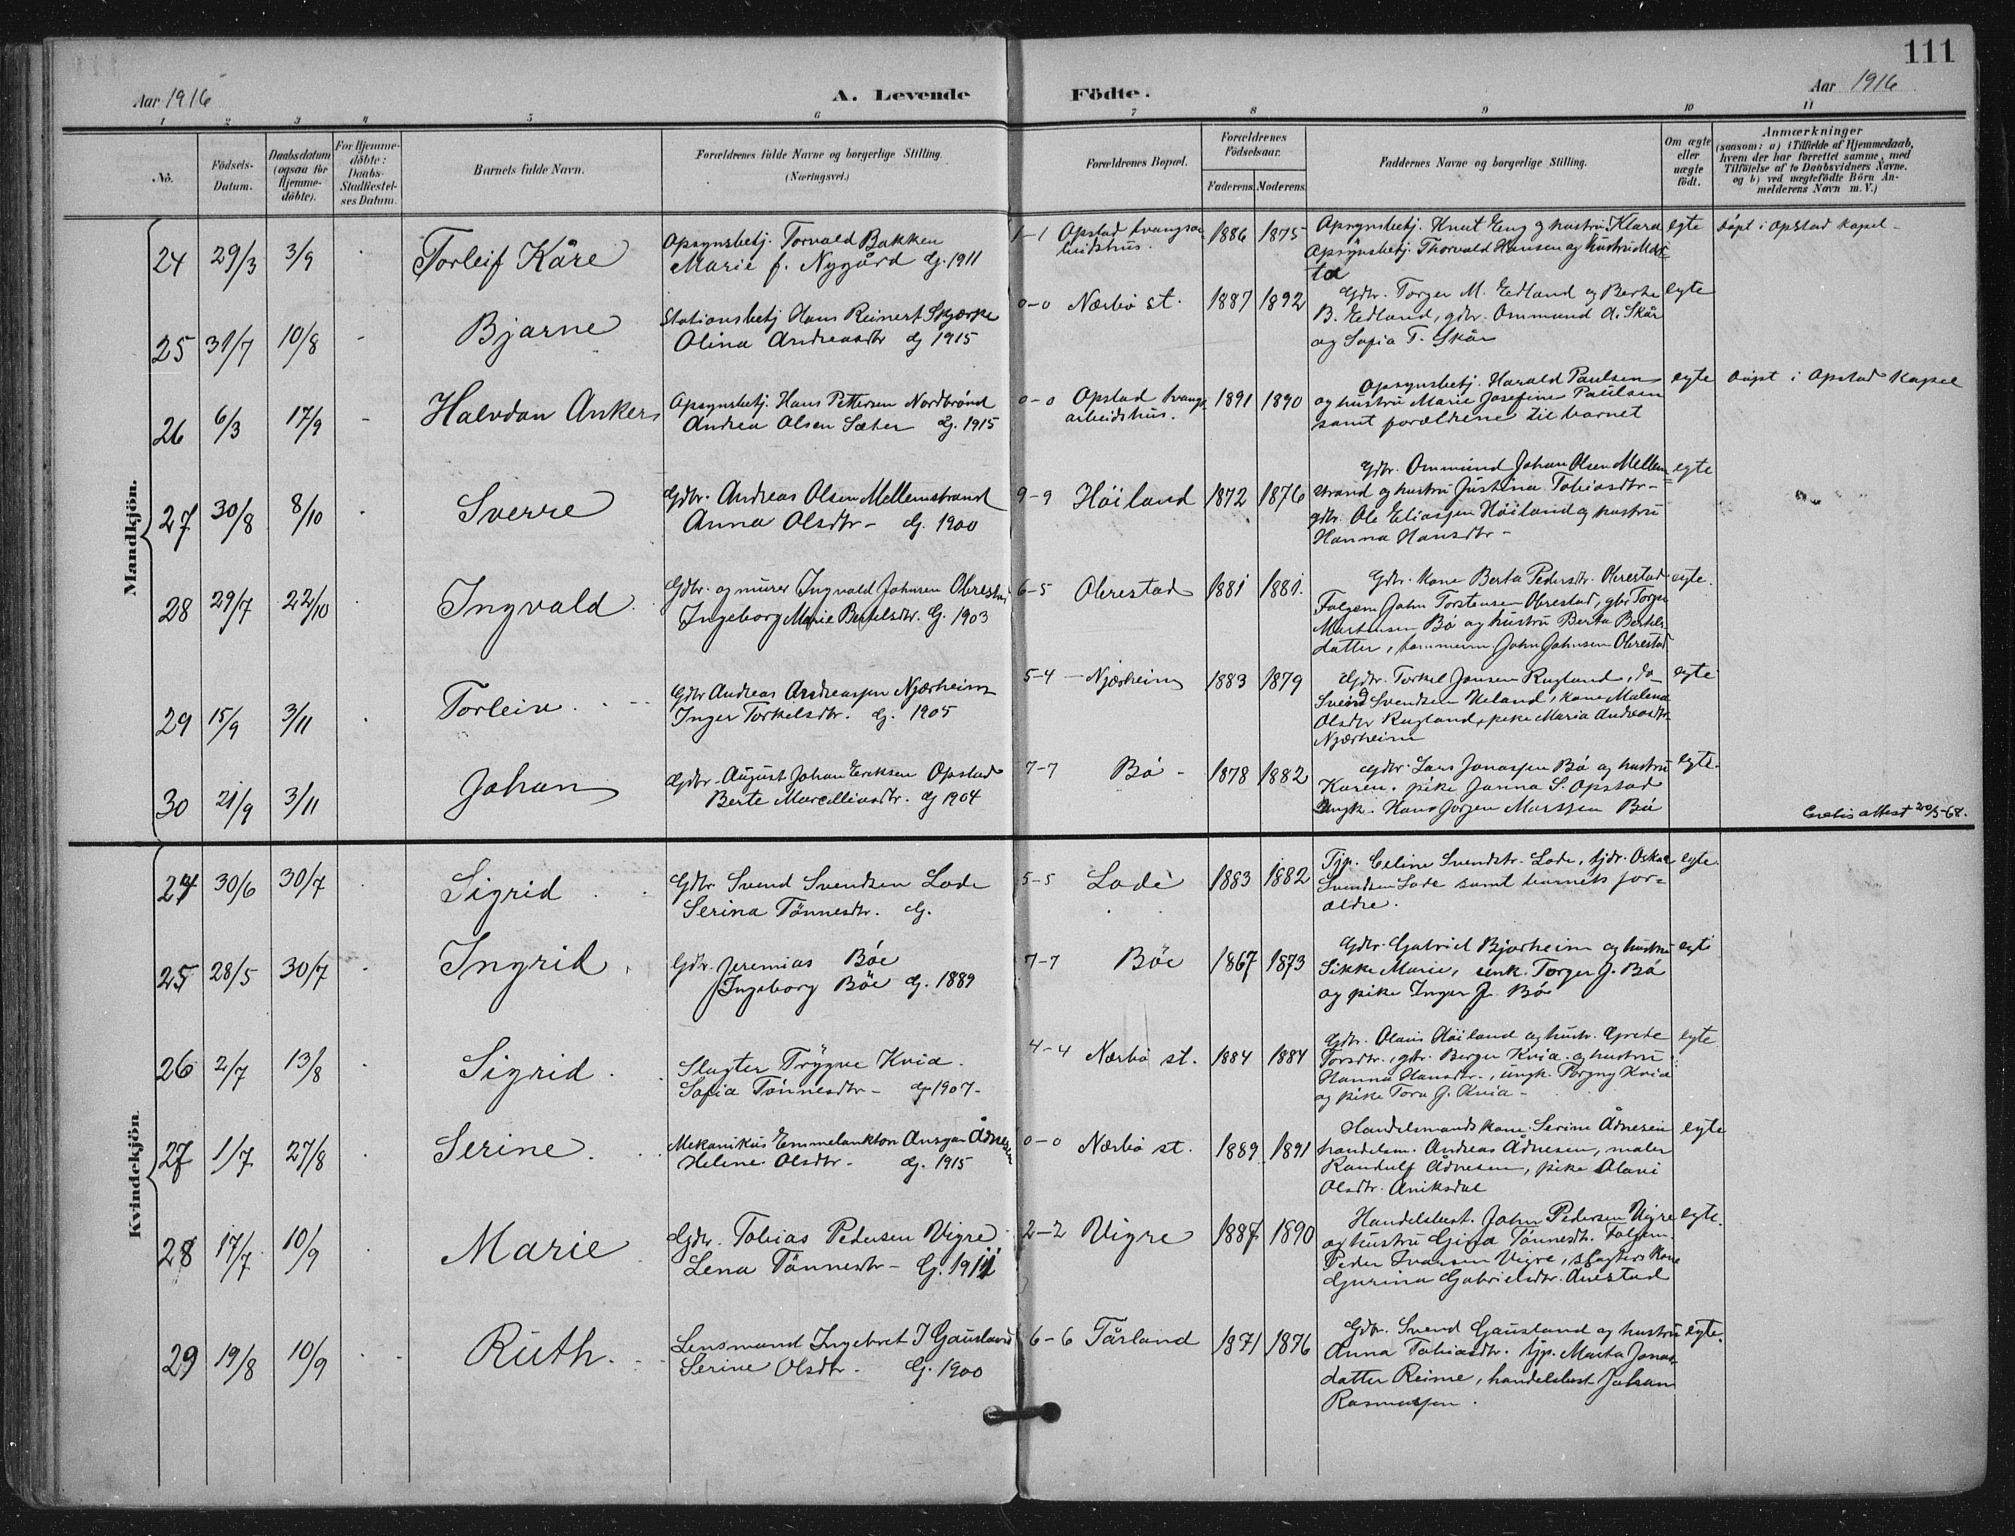 111
Aar 1916 A. Levende Födte. Aar 1916
1 2 3 4 5 6 7 8 9 10 11
No.
Födsels-Datum.
Daabsdatum (ogsaa for Hjemme-döbte).
For Hjemme-döbte: Daabs-Stadfæstel-ses Datum.
Barnets fulde Navn.
Forældrenes fulde Navne og borgerlige Stilling.
(Næringsvei.)
Forældrenes Bopæl.
Forældrenes Födselsaar.
Faderens. Moderens.
Faddernes Navne og borgerlige Stilling.
Om ægte eller uægte födt.
Anmærkninger
(saasom: a) i Tilfælde af Hjemmedaab,
hvem der har forrettet samme, med
Tilföielse af to Daabsvidners Navne.
og b) ved uægtefödte Börn An-
melderens Navn m. V.)
Mandkjön.
24 29/3 3/9 Torleif Kåre
Opsynsbetj. Torvald Bakken
Marie f. Nygård G. 1911
1-1 Opstad tvangsar
beidshus.
1886 1875
Opsynsbetj. Knut Eng og hustru Klara
Opsynsbetj. Thorvald Hansen og hustru
egte døpt i Opstad kapel
25 31/7 10/8 - Bjarne
Stationsbetj Hans Reinert Skjærpe
Olina Andreasdtr G 1915
0-0 Nærbø st. 1887 1892
Gdbr. Torger M. Edland og Berte
B. Edland, gdbr. Ommund A. Skår
og Sofia T. Skår
egte
26 6/3 17/9 - Halvdan Anker
Opsynsbetj. Hans Pettersen Nordbrønd
Andrea Olsen Sæter G. 1915
0-0 Opstad tvangs
arbeidshus.
1891 1890
Opsynsbetj. Harald Paulsen
og hustru Marie Josefine Paulsen
samt forældrene til barnet
egte døpt i Opstad Kapel
27 30/8 8/10 Sverre
Gdbr. Andreas Olsen Mellemstrand
Anna Olsdtr - G. 1900
9-9 Høiland 1872 1876
Gdbr. Ommund Johan Olsen Mellem
strand og hustru Justina Tobiasdtr -
gdbr. Ole Eliassen Høiland og hustru
Hanna Hansdtr -
egte
28 29/7 22/10 Ingvald
Gdbr. og murer Ingvald Johnsen Obrestad
Ingeborg Marie Bertelsdtr. G. 1903
6-5 Obrestad 1881 1881
Gdbr. kone Berta Pedersdtr. Obrestad
Folgem John Torstensen Obrestad, gbr Torger
Martinsen Bø og hustru Berta Bertels
datter, tømmerm John Johnsen Obrestad
egte.
29 15/9 3/11 Torleiv
Gdbr Andreas Andreassen Njærheim
Inger Torkelsdtr. G. 1905
5-4 - Njærheim 1883 1879
Gdbr. Torkel Jonsen Rugland, do
Sveind Svendsen Ueland, kone Malena
Olsdtr Rugland, pike Maria Andreasdtr
Njærheim
egte
30 21/9 3/11 Johan
Gdbr. August Johan Eriksen Opstad
Berte Marcelliusdtr. G 1904
7-7 Bø - 1878 1882
Gdbr Lars Jonassen Bø og hustru
Karen. pike Janna S. Opstad
Ungk. Hans Jørgen Marssen Bø
egte. attest 20/5-68.
Kvindekjön.
24 30/6 30/7 Sigrid
Gdbr Svend Svendsen Lode
Serina Tönnesdtr. G.
5-5 Lode 1883 1882
Tjp. Celine Svendsdtr. Lode, tjdr. Oskar
Svendsen Lode samt barnets for=
ældre.
egte.
25 28/5 30/7 Ingrid
Gdbr. Jeremias Bøe
Ingeborg Bøe G. 1889
7-7 Bøe 1867 1873
Gdbr. Gabriel Bjorheim og hustru
Sikke Marie, enk. Torger J. Bø
og pike Inger J. Bø
egte
26 2/7 13/8 Sigrid
Slagter Trÿgve Kvia
Sofia Tönnesdtr - G 1907 -
4-4 Nærbø st. 1884 1884
Gdbr. Olaus Høiland og hustr. Grete
Torsdtr. gbr. Berger Kvia og hustru
Hanna Hansdtr., ungk. Torgny Kvia
og pike Tora J. Kvia -
egte
27 1/7 27/8 Serine
Mekanikus Emmelankton Ansgar Ådnesen
Heline Olsdtr - G. 1915
0-0 Nærbø st. 1889 1891
Handelsmandskone Serine Ådnesen
handelsm. Andreas Ådnesen, maler
Randulf Ådnesen, pike Olani
Olsdtr. Aniksdal
egte
28 17/7 10/9 Marie
Gdbr. Tobias Pedersen Vigre
Lena Tönnesdtr - G. 1911
2-2 Vigre 1887 1890
Handelsbest. John Pedersen Vigre
og hustru Gina Tönnesdt. Folgem.
Peder Ivarsen Vigre, slagters kone
Gurina Gabrielsdtr. Auestad
egte.
29 19/8 10/9 Ruth.
Lensmand Ingebret I Gausland
Serine Olsdtr - G. 1900
6-6 Tårland 1871 1876
Gdbr. Svend Gausland og hustru
Anna Tobiasdtr. tjp. Marta Jonas
datter Reime, handelsbest Johan
Rasmussen.
egte.